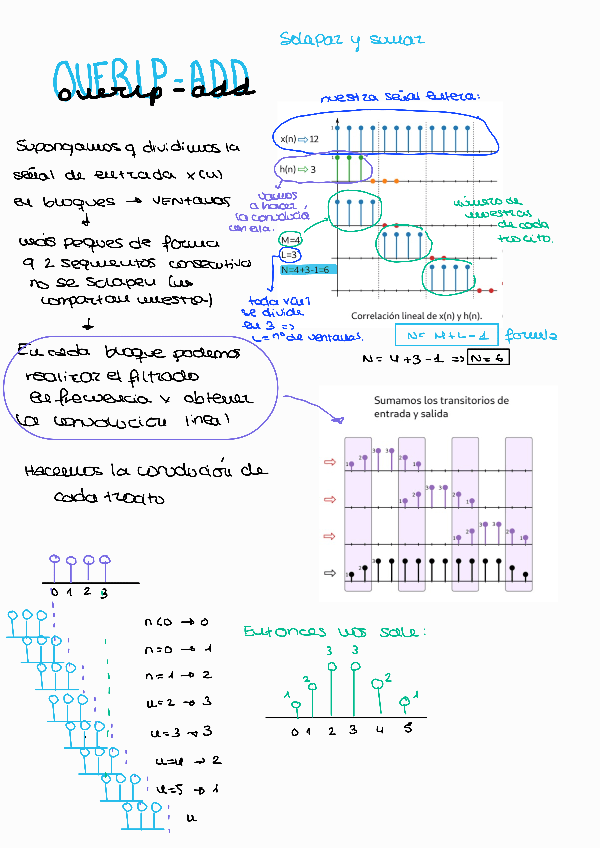 Solapar y sumar
OVERLP-ADD
overlp-add
nuestra señal entera:
Supongamos q dividimos la
señal de entrada x(n)
en bloques → VENTANAS
más peques de forma
q 2 segmentos consecutivos
no se solapen (no
compartan muestra)
En cada bloque podemos
realizar el filtrado
en frecuencia y obtener
la convolucion lineal
Hacemos la convolución de
cada trocito
x(n) ⇒ 12
h(n) ⇒ 3
vamos
a hacer
la convolución
con ella.
M=4
L=3
N=4+3-1=6
número de
muestras
de cada
trocito.
toda x(n)
se divide
en 3 =>
L = nº de ventanas.
Correlación lineal de x(n) y h(n).
N = M+L-1 formula
N = 4+3-1 => N=6
Sumamos los transitorios de
entrada y salida
1 2 3 3 2 1
1 2 3 3 2 1
1 2 3 3 2 1
1 2 3 2 1
0 1 2 3
n<0 → 0
n=0 → 1
n=1 → 2
n=2 → 3
n=3 → 3
n=4 → 2
n=5 → 1
n
Entonces nos sale:
1 2 3 3 2 1
0 1 2 3 4 5